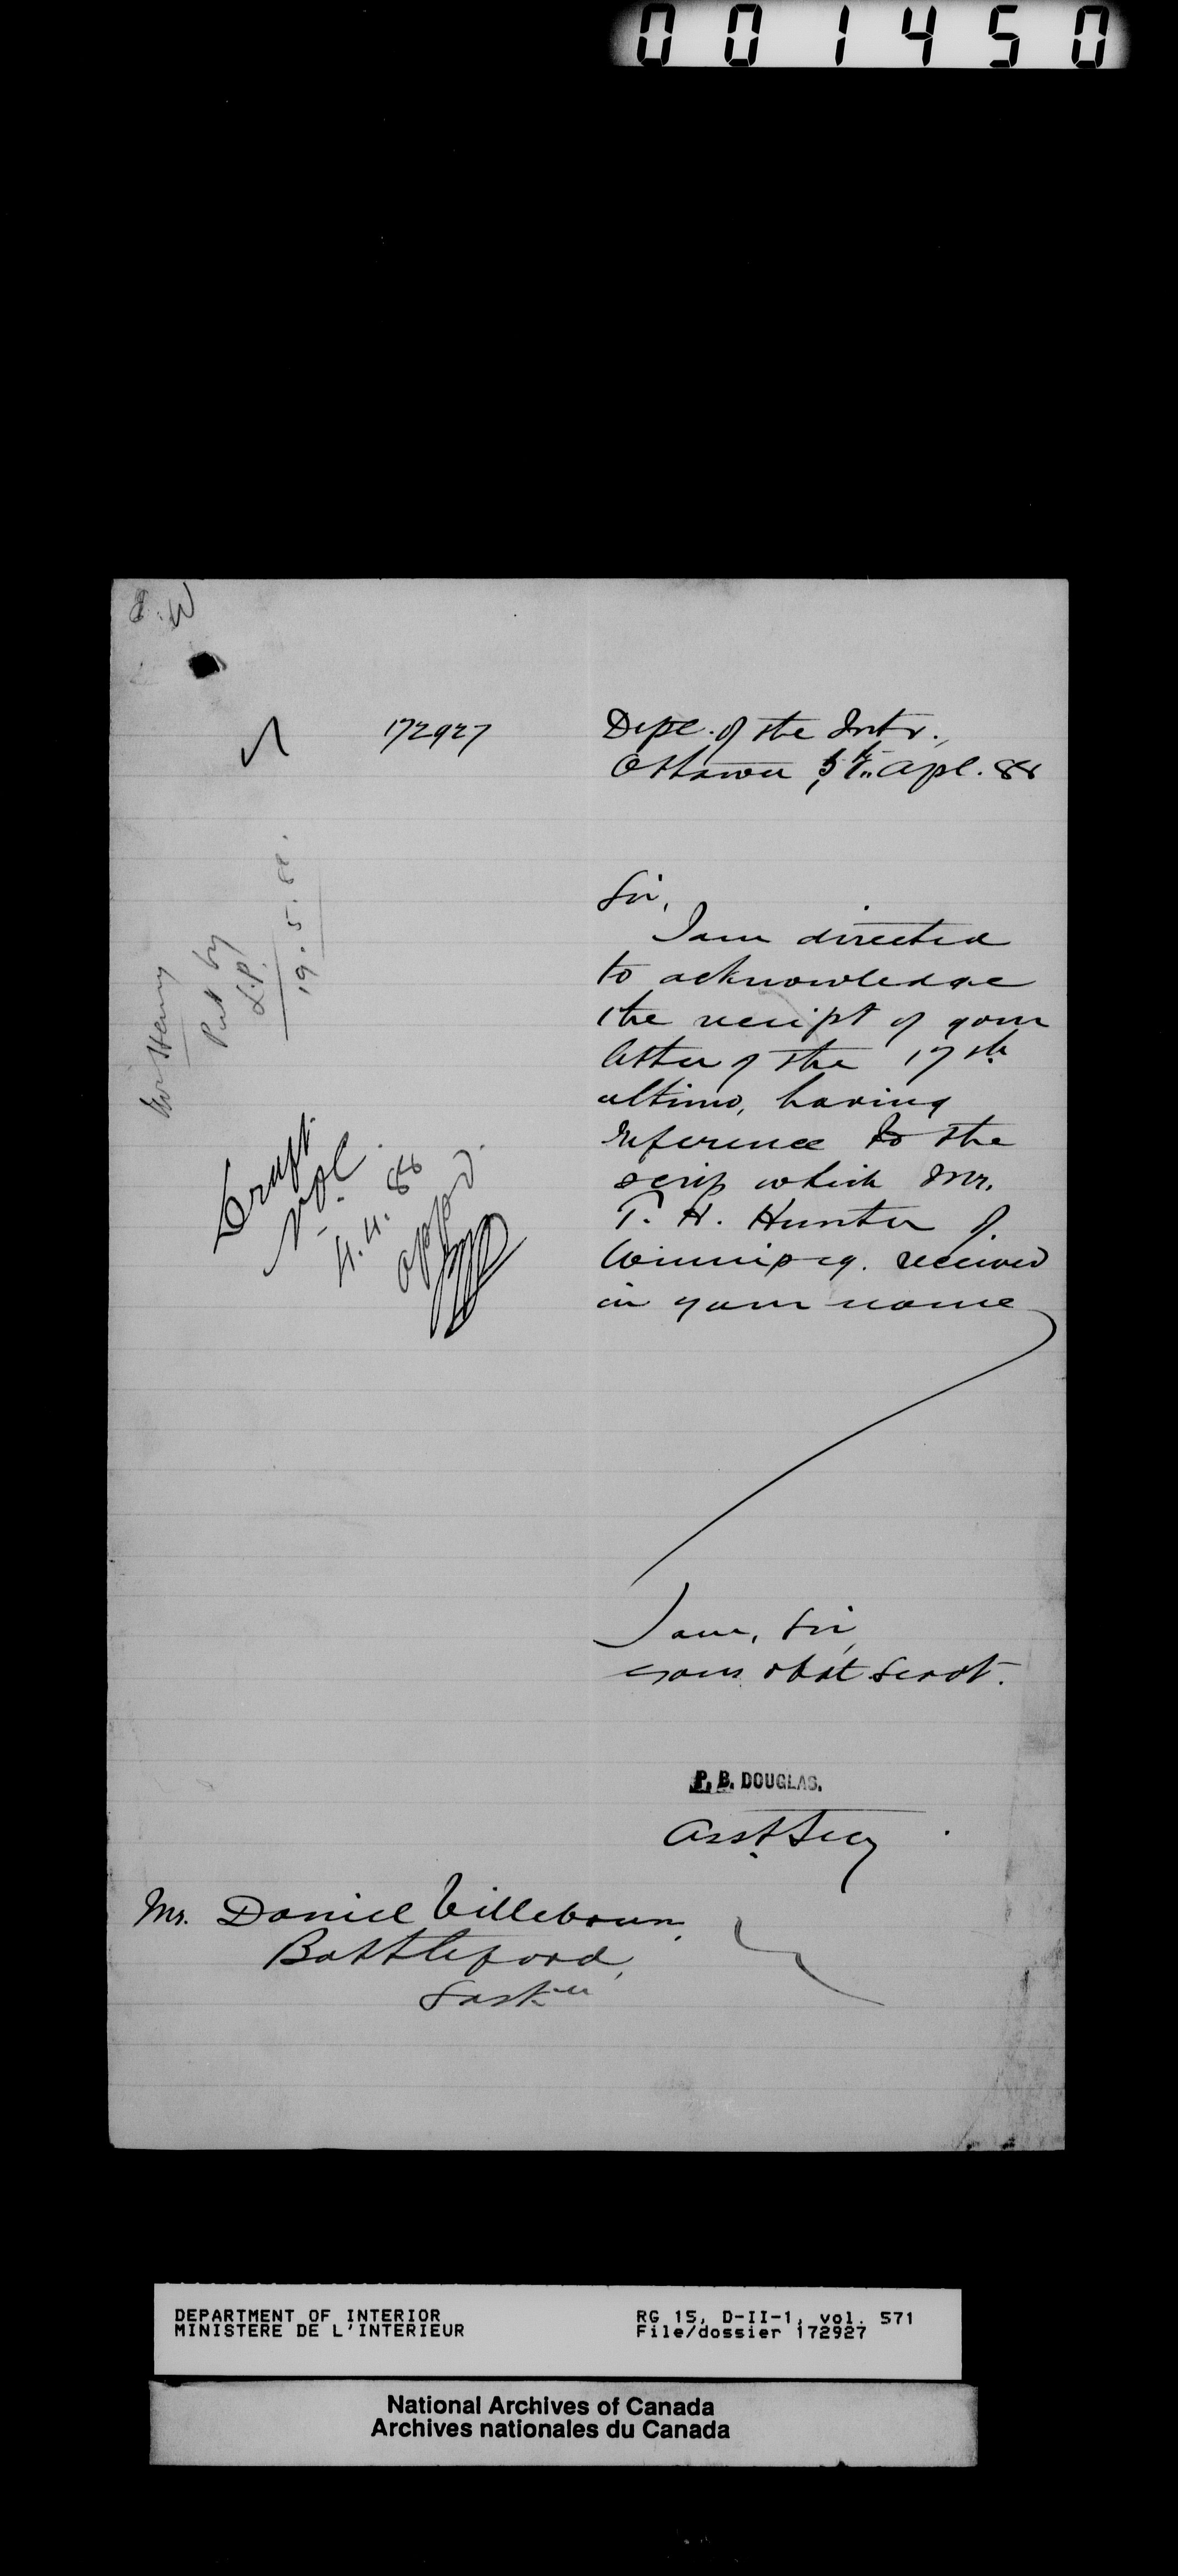 001450
172927
Dept. of the Intr.,
Ottawa, 5th Apl. 88
Sir,
I am directed
to acknowledge
the receipt of your
letter of the 17th
ultimo, having
reference to the
scrip which Mr.
T. H. Hunter of
Winnipeg. received
in your name
Mr Henry
Put by
L.P.
19.5.88.
Draft
4.4.88
appd.
I am, Sir,
Your obdt Servt.
P. B. DOUGLAS.
Asst. Secy
Mr. Daniel Villebrun,
Battleford,
Saskn
DEPARTMENT OF INTERIOR
MINISTERE DE L'INTERIEUR
RG 15, D-II-1, vol. 571
File/dossier 172927
National Archives of Canada
Archives nationales du Canada